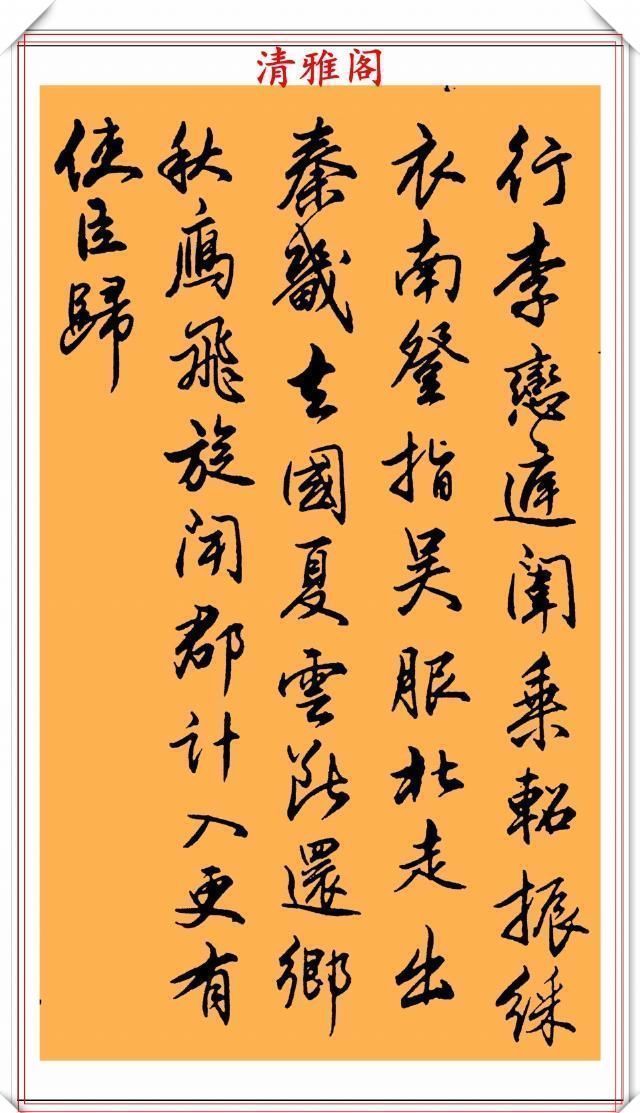 清雅阁
行李戀庭闈乘軺振綵
衣南登指吴服北走出
秦畿去國夏雲断還鄉
秋鴈飛旋聞郡計入更有
使臣歸